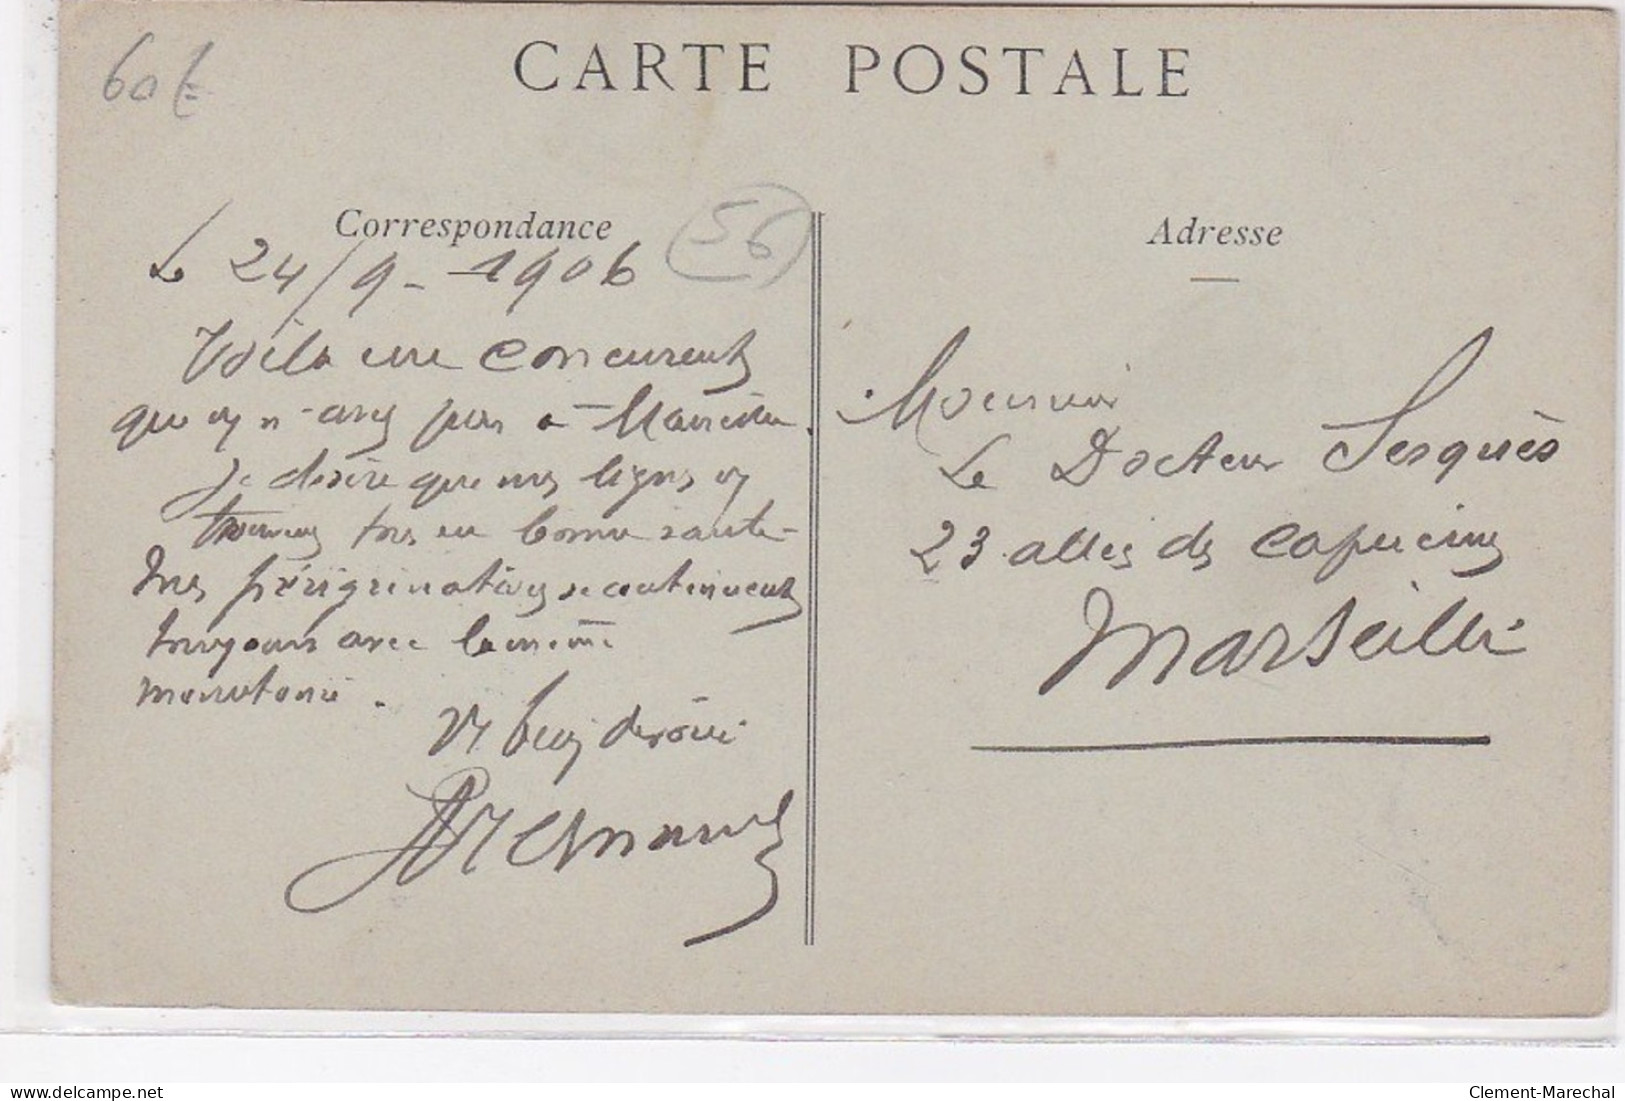 60 €
CARTE POSTALE
Correspondance
56
Le 24/9 - 1906
Voilà un concurrent
que vs n'avez pas à Marseille.
Je désire que mes lignes vs
trouvent tous en bonne santé -
Mes pérégrinations se continuent
toujours avec la même
monotonie.
Vs bien dévoué
Adresse
Monsieur
Le Docteur Serquès
23 allées des Capucines
Marseille
delcampe.net
Clement-Marechal